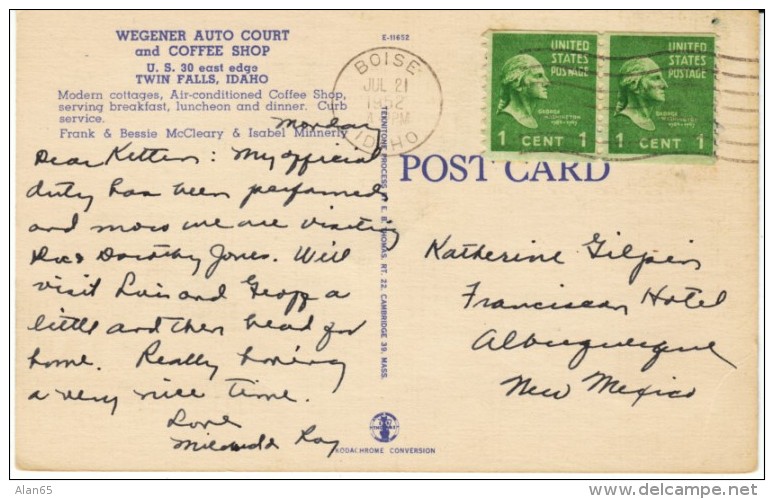 WEGENER AUTO COURT
and COFFEE SHOP
U. S. 30 east edge
TWIN FALLS, IDAHO
Modern cottages, Air-conditioned Coffee Shop,
serving breakfast, luncheon and dinner. Curb
service.
Frank & Bessie McCleary & Isabel Minnerly
E-11652
BOISE
JUL 21
1952
PM
IDAHO
UNITED
STATES
POSTAGE
GEORGE
WASHINGTON
1 CENT 1
UNITED
STATES
POSTAGE
GEORGE
WASHINGTON
1 CENT 1
POST CARD
Monday
Dear Kitten: My official
duty has been performed
and now we are visiting
Doc & Dorothy Jones. Will
visit Lois and Geoff a
little and then head for
home. Really having
a very nice time.
Love
Ray
Katherine Gilpin
Franciscan Hotel
Albuquerque
New Mexico
TEKNITONE PROCESS BY E. B. THOMAS, RT. 22, CAMBRIDGE 39, MASS.
KODACHROME CONVERSION
Alan65
http://www.delcampe.net